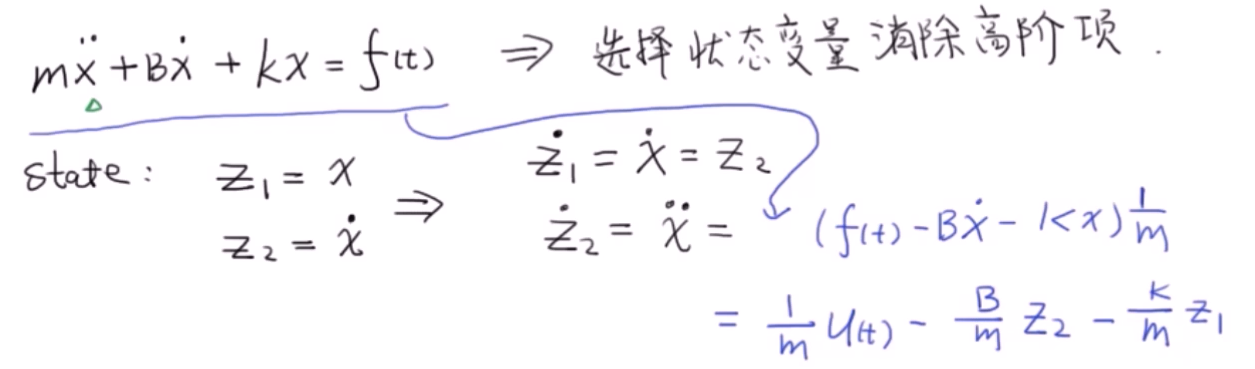 mẍ + Bẋ + kx = f(t) ⇒ 选择状态变量消除高阶项.
state: z₁ = x ⇒ ż₁ = ẋ = z₂
z₂ = ẋ ż₂ = ẍ = (f(t) - Bẋ - kx) 1/m
= 1/m u(t) - B/m z₂ - k/m z₁